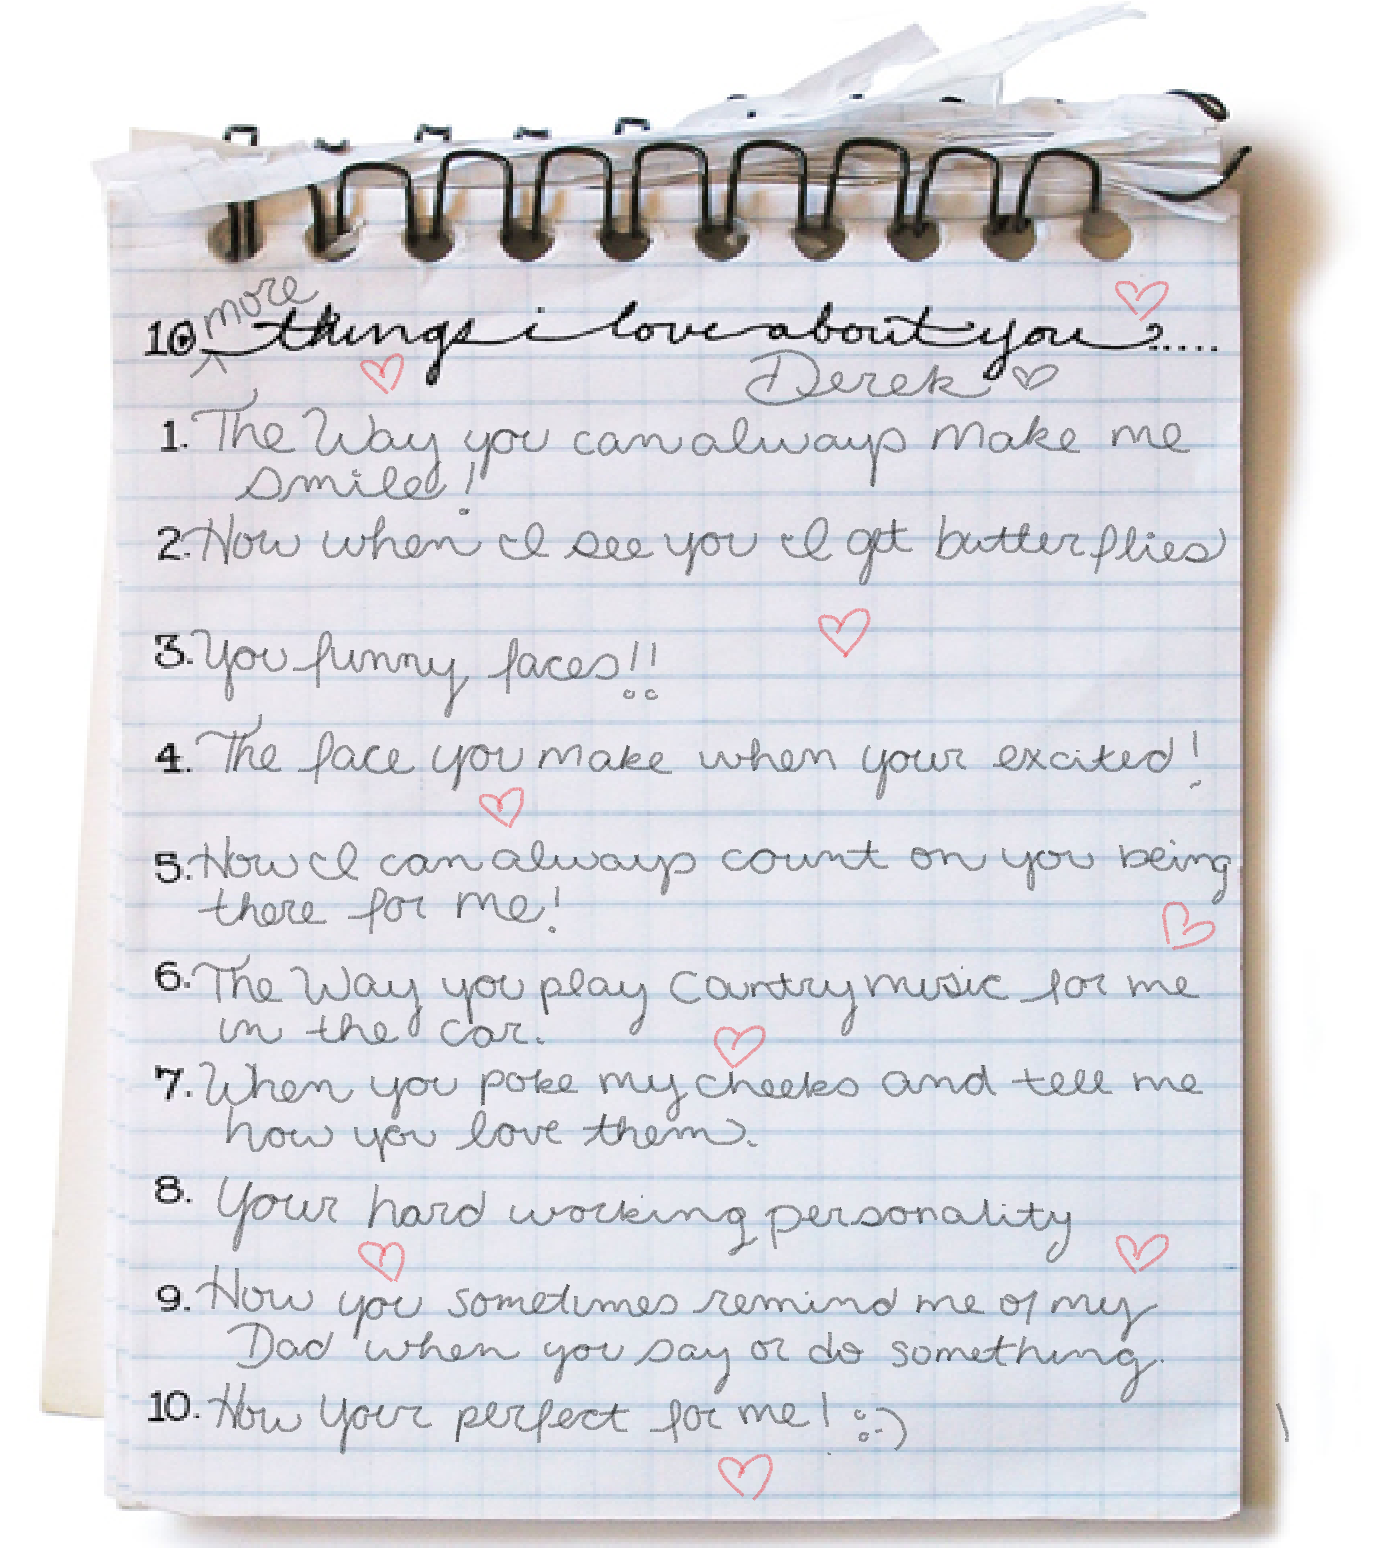 10 more things i love about you.....
Derek
1. The Way you can always make me
smile!
2. How when I see you I get butterflies
3. You funny faces!!
4. The face you make when your excited!
5. How I can always count on you being
there for me!
6. The Way you play Country music for me
in the car.
7. When you poke my cheeks and tell me
how you love them.
8. Your hard working personality
9. How you sometimes remind me of my
Dad when you say or do something.
10. How your perfect for me! :-)